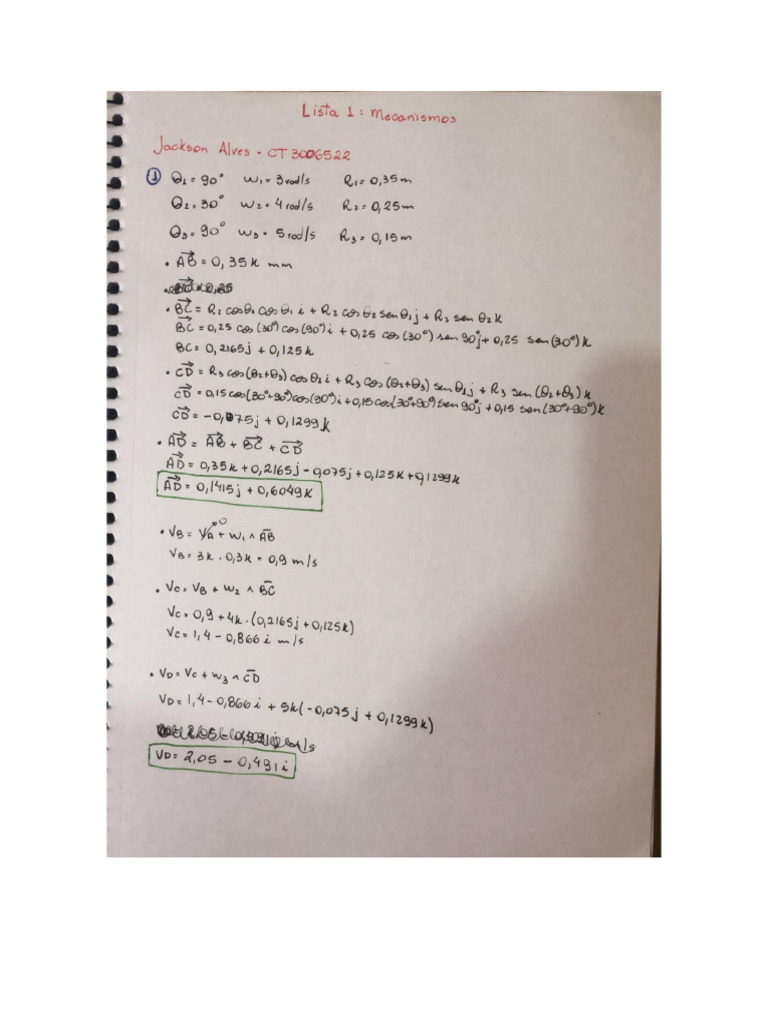 Lista 1: Mecanismos
Jackson Alves - CT3006522
1 θ1 = 90° W1 = 3 rad/s R1 = 0,35m
θ2 = 30° W2 = 4 rad/s R2 = 0,25m
θ3 = 90° W3 = 5 rad/s R3 = 0,15m
• AB = 0,35k mm
• BC = R2 cosθ2 cosθ1 i + R2 cosθ2 senθ1 j + R2 senθ2 k
BC = 0,25 cos(30°) cos(90°) i + 0,25 cos(30°) sen 90° j + 0,25 sen(30°) k
BC = 0,2165j + 0,125k
• CD = R3 cos(θ2+θ3) cosθ1 i + R3 cos(θ2+θ3) senθ1 j + R3 sen(θ2+θ3) k
CD = 0,15 cos(30°+90°) cos(90°) i + 0,15 cos(30°+90°) sen 90° j + 0,15 sen(30°+90°) k
CD = -0,075j + 0,1299k
• AD = AB + BC + CD
AD = 0,35k + 0,2165j - 0,075j + 0,125k + 0,1299k
AD = 0,1415j + 0,6049k
• VB = VA + W1 ∧ AB
0
VB = 3k . 0,3k = 0,9 m/s
• VC = VB + W2 ∧ BC
VC = 0,9 + 4k . (0,2165j + 0,125k)
VC = 1,4 - 0,866 i m/s
• VD = VC + W3 ∧ CD
VD = 1,4 - 0,866 i + 5k(-0,075j + 0,1299k)
VD = 2,05 - 0,491 i